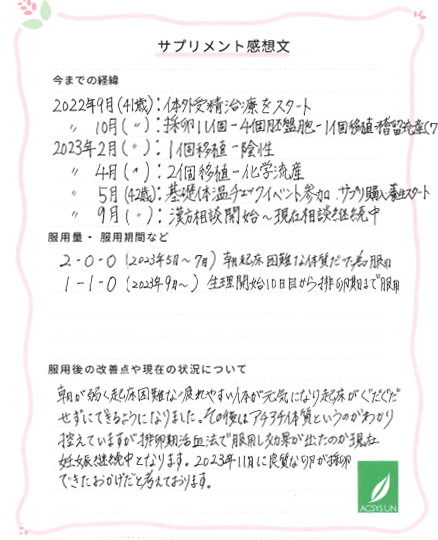 サプリメント感想文
今までの経緯
2022年9月(41歳)：体外受精治療をスタート
〃 10月(〃)：採卵11個－4個胚盤胞－1個移植－稽留流産(7
2023年2月(〃)：1個移植－陰性
〃 4月(〃)：2個移植－化学流産
〃 5月(42歳)：基礎体温チェックイベント参加.サプリ購入養生スタート
〃 9月(〃)：漢方相談開始～現在相談継続中
服用量・服用期間など
2-0-0 (2023年5月～7月) 朝起床困難な体質だった為服用
1-1-0 (2023年9月～) 生理開始10日目から排卵期まで服用
服用後の改善点や現在の状況について
朝が弱く起床困難な疲れやすい体が元気になり起床がぐだぐだ
せずにできるようになりました。その後はアチアチ体質というのがわかり
控えていますが排卵期活血法で服用し効果が出たのか現在
妊娠継続中となります。2023年11月に良質な卵が採卵
できたおかげだと考えております。
ACSYS UN